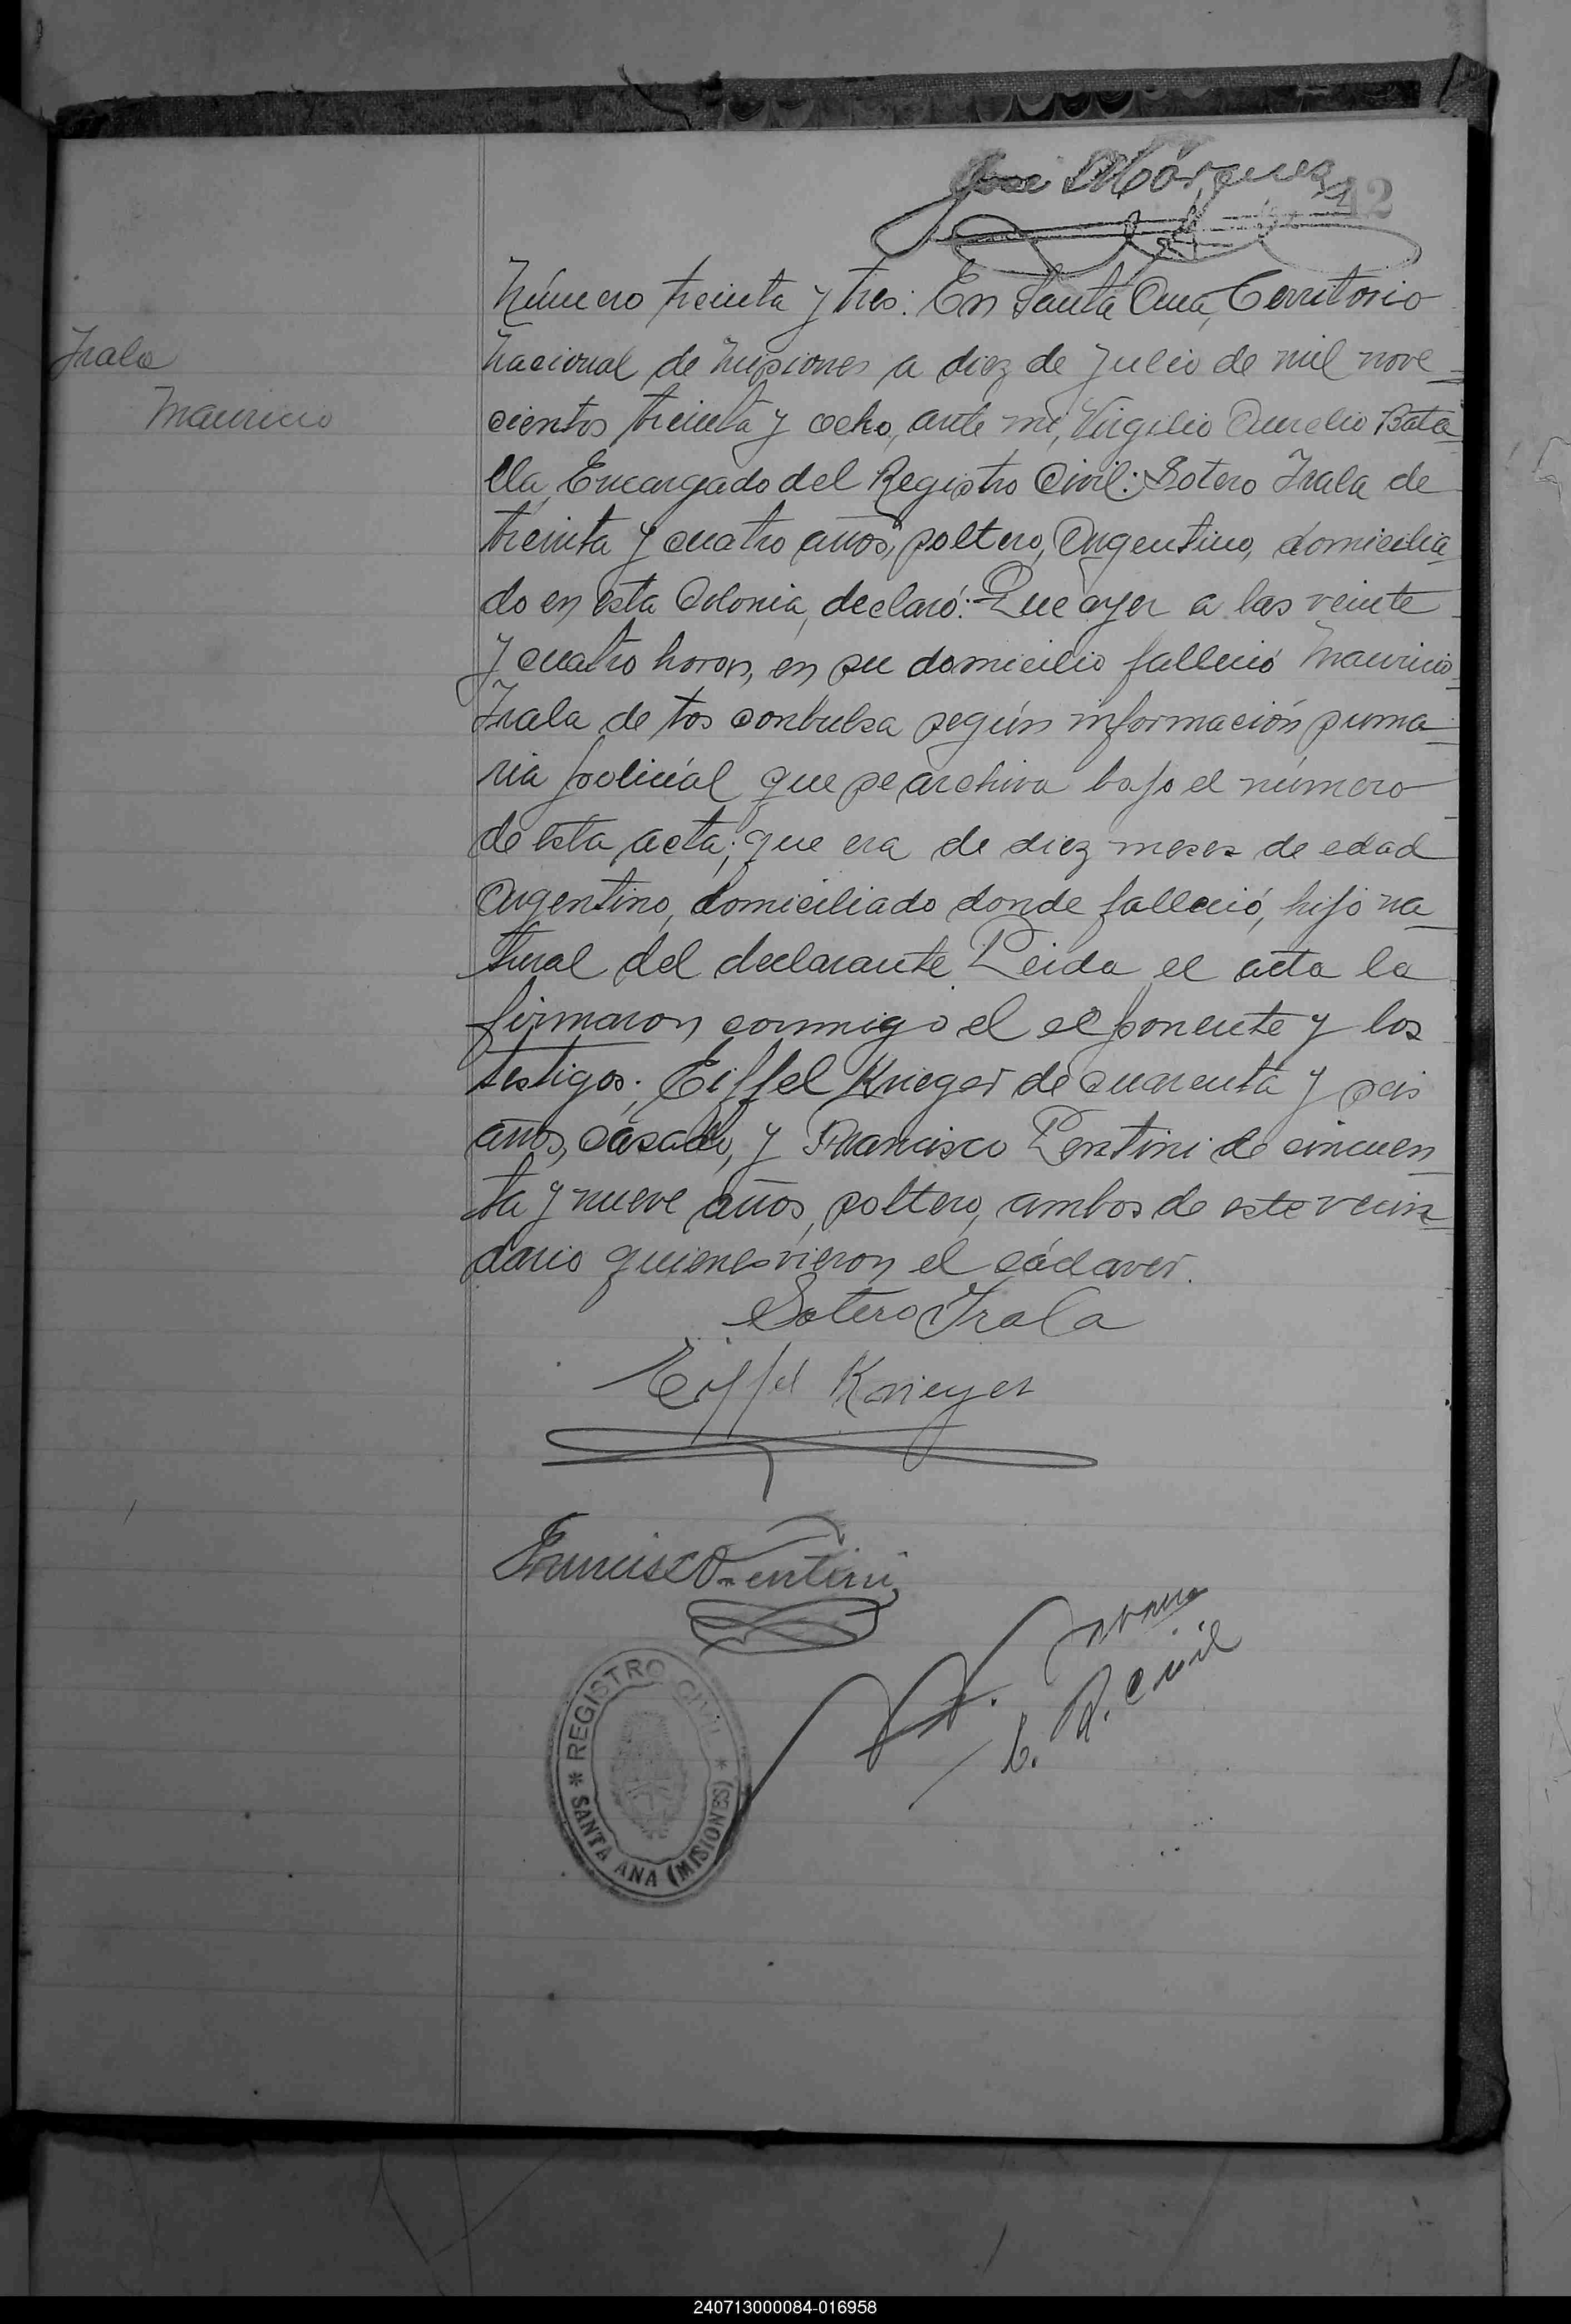 José Márquez
42
Irala
Mauricio
Número treinta y tres: En Santa Ana, Territorio
Nacional de Misiones a diez de Julio de mil nove
cientos treinta y ocho, ante mí, Virgilio Aurelio Bata
lla, Encargado del Registro Civil: Sotero Irala de
treinta y cuatro años, soltero, Argentino, domicilia
do en esta Colonia, declaró: Que ayer a las veinte
y cuatro horas, en su domicilio falleció Mauricio
Irala de tos conbulsa según información suma
ria policial que se archiva bajo el número
de esta acta; que era de diez meses de edad
Argentino, domiciliado donde falleció, hijo na
tural del declarante. Leida el acta la
firmaron conmigo el esponente y los
testigos: Eiffel Krieger de cuarenta y seis
años, casado, y Francisco Lentini de cincuen
ta y nueve años, soltero, ambos de este vecin
dario quienes vieron el cádaver.
Sotero Irala
Eiffel Krieger
Francisco Lentini
E. R. Civil
* REGISTRO CIVIL *
SANTA ANA (MISIONES)
240713000084-016958